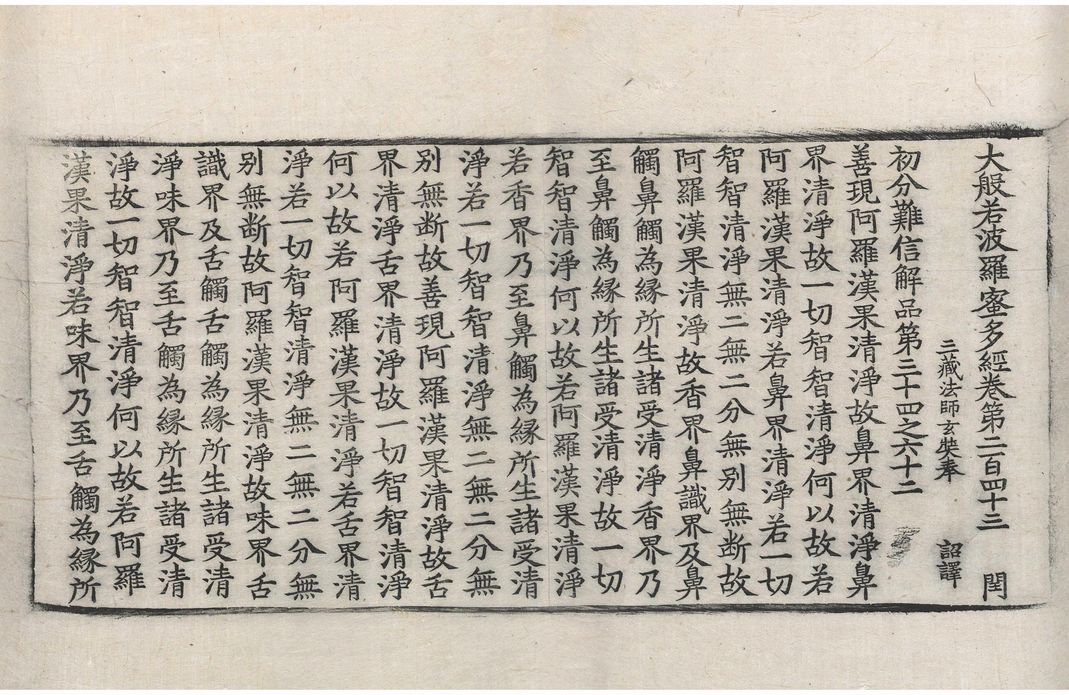 大般若波羅蜜多經卷第二百四十三　閏
三藏法師玄奘奉　詔譯
初分難信解品第三十四之六十二
善現阿羅漢果清淨故鼻界清淨鼻
界清淨故一切智智清淨何以故若
阿羅漢果清淨若鼻界清淨若一切
智智清淨無二無二分無别無断故
阿羅漢果清淨故香界鼻識界及鼻
觸鼻觸為緣所生諸受清淨香界乃
至鼻觸為緣所生諸受清淨故一切
智智清淨何以故若阿羅漢果清淨
若香界乃至鼻觸為緣所生諸受清
淨若一切智智清淨無二無二分無
别無断故善現阿羅漢果清淨故舌
界清淨舌界清淨故一切智智清淨
何以故若阿羅漢果清淨若舌界清
淨若一切智智清淨無二無二分無
别無断故阿羅漢果清淨故味界舌
識界及舌觸舌觸為緣所生諸受清
淨味界乃至舌觸為緣所生諸受清
淨故一切智智清淨何以故若阿羅
漢果清淨若味界乃至舌觸為緣所